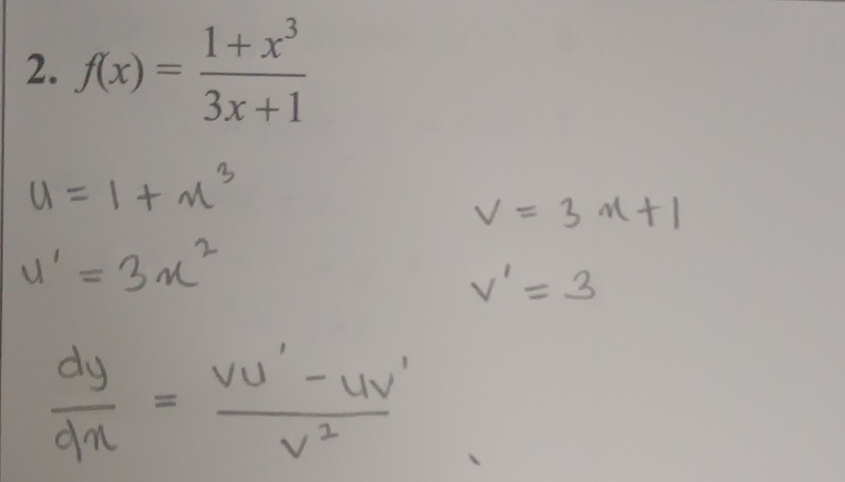 2. f(x) = (1 + x³)/(3x + 1)
u = 1 + x³
v = 3x + 1
u' = 3x²
v' = 3
dy/dx = (vu' - uv')/v²